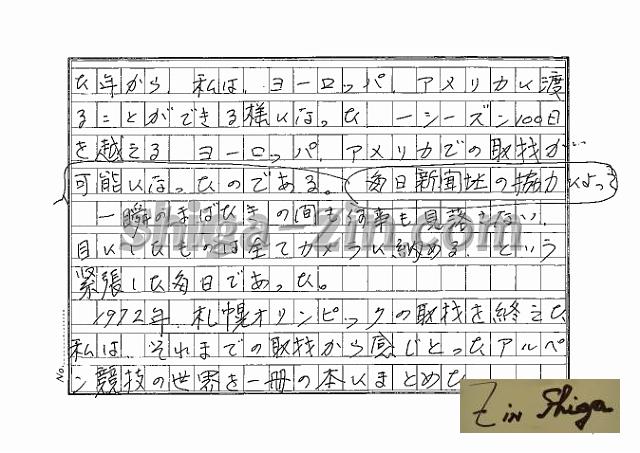 た年から、私は、ヨーロッパ、アメリカに渡
ることができる様になった 一シーズン100日
を越える ヨーロッパ、アメリカでの取材が
可能になったのである。毎日新聞社の協力によって
一瞬のまばたきの間も何事も見落さない、
目にしたものは全てカメラに納める、という
緊張した毎日であった。
1972年、札幌オリンピックの取材を終えた
私は、それまでの取材から感じとったアルペ
ン競技の世界を一冊の本にまとめた
Shiga-zin.com
No.
Z in Shiga